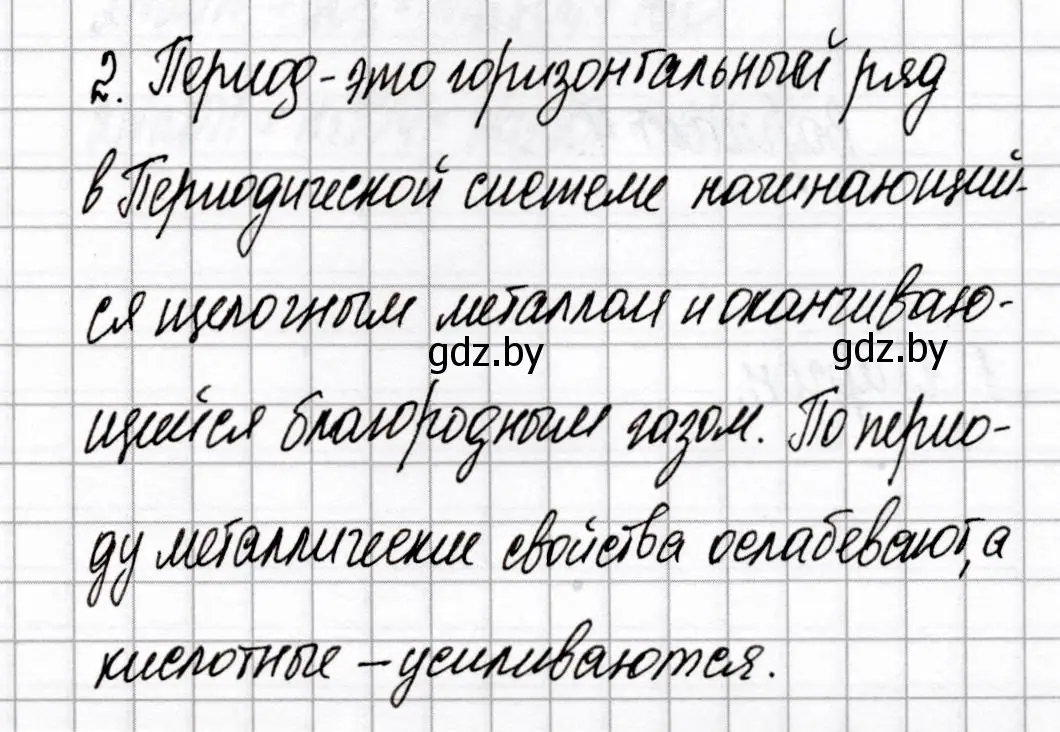 2. Период - это горизонтальный ряд
в Периодической системе начинающий-
ся щелочным металлом и оканчиваю-
gdz.by gdz.by
щийся благородным газом. По перио-
ду металлические свойства ослабевают, а
кислотные – усиливаются.